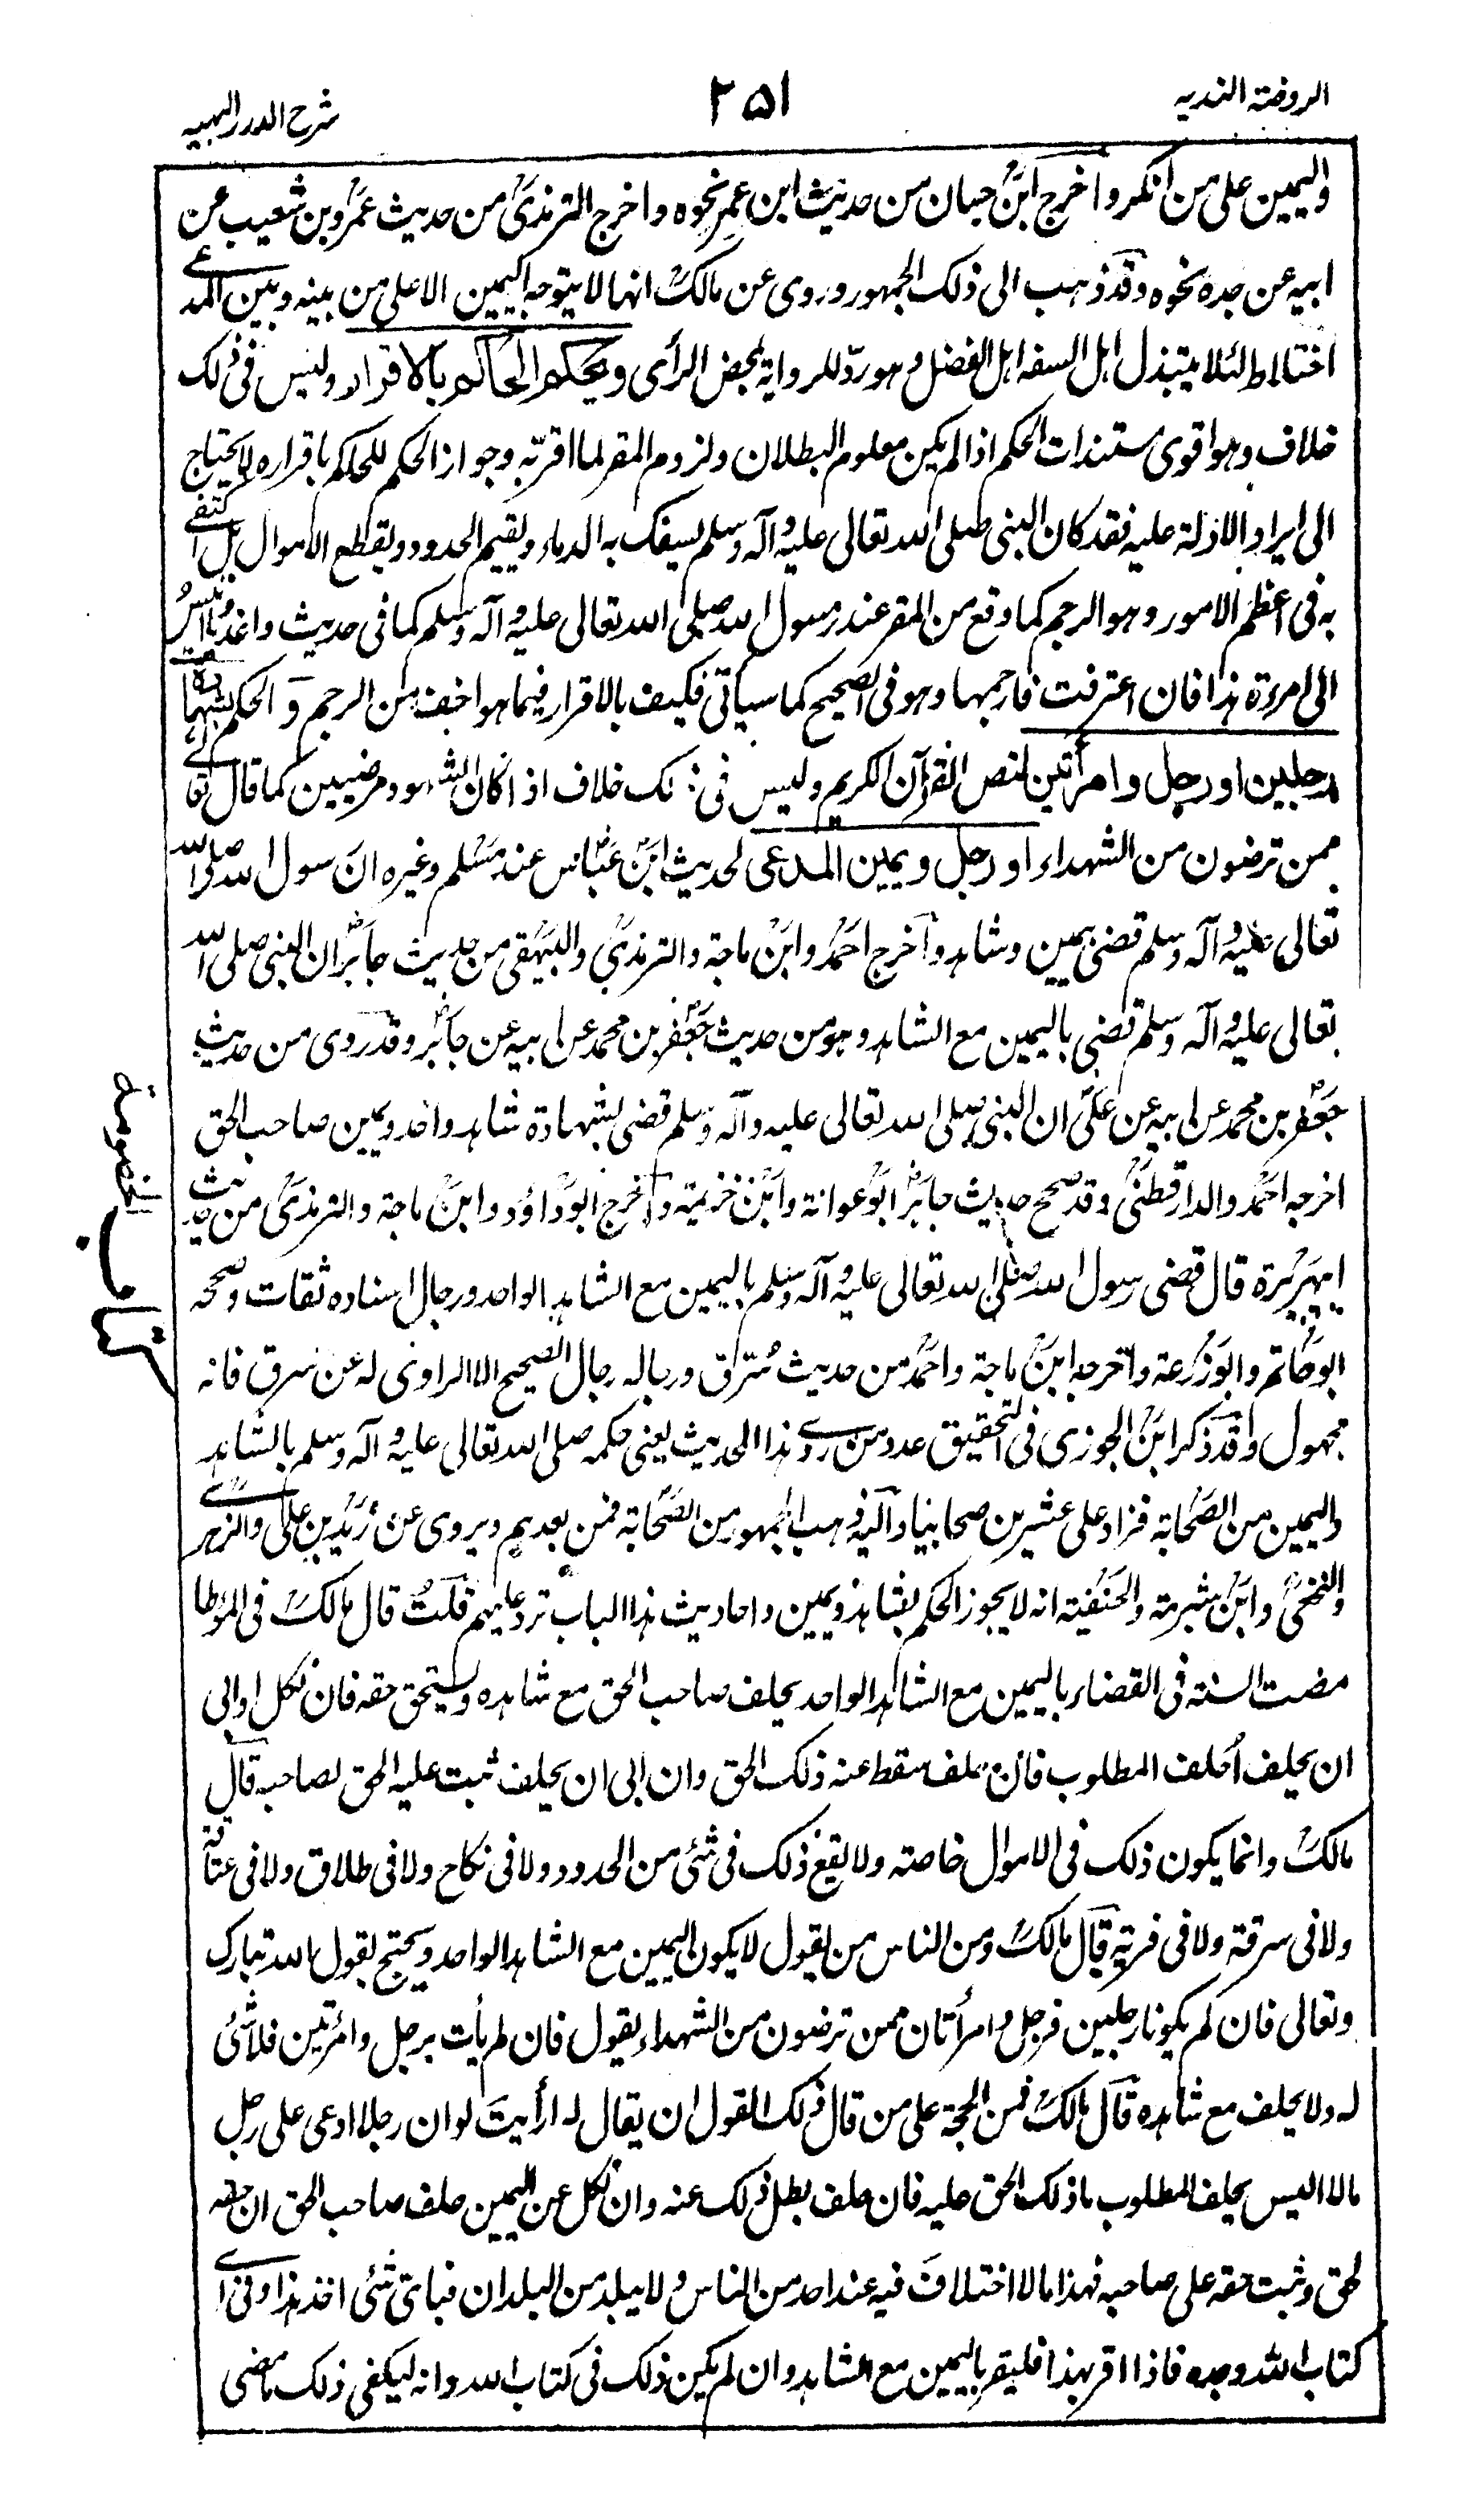 الروضة الندية
٢٥١
شرح الدرر البهية
واليمين على من انكر واخرج ابن حبان من حديث ابن عمر نحوه واخرج الترمذى من حديث عمرو بن شعيب عن
ابيه عن جده نحوه وقد ذهب الى ذلك الجمهور وروى عن مالك انها لا يتوجه اليمين الا على من بينه وبين المدعى
اختلاط لئلا يتبذل اهل السفه اهل الفضل وهو رد للرواية بمحض الرأى ويحكم الحاكم بالاقرار وليس فى ذلك
خلاف وهو اقوى مستندات الحكم اذا لم يكن معلوم البطلان ولزوم المقر لما اقر به وجواز الحكم للحاكم باقراره لا يحتاج
الى ايراد الادلة عليه فقد كان النبى صلى الله تعالى عليه وآله وسلم يسفك به الدماء ويقيم الحدود ويقطع الاموال بل اكتفى
به فى اعظم الامور وهو الرجم كما وقع من المقر عند رسول الله صلى الله تعالى عليه وآله وسلم كما فى حديث واغد يا انيس
الى امرءة هذا فان اعترفت فارجمها وهو فى الصحيح كما سيأتى فكيف بالاقرار فيما هو اخف من الرجم و الحكم بشهادة
رجلين او رجل وامرأتين لنص القرآن الكريم وليس فى ذلك خلاف اذا كان الشهود مرضيين كما قال تعالى
ممن ترضون من الشهداء او رجل ويمين المدعى لحديث ابن عباس عند مسلم وغيره ان رسول الله صلى الله
تعالى عليه وآله وسلم قضى بيمين وشاهد واخرج احمد وابن ماجة والترمذى والبيهقى من حديث جابر ان النبى صلى الله
تعالى عليه وآله وسلم قضى باليمين مع الشاهد وهو من حديث جعفر بن محمد عن ابيه عن جابر وقد روى من حديث
جعفر بن محمد عن ابيه عن على ان النبى صلى الله تعالى عليه وآله وسلم قضى بشهادة شاهد واحد ويمين صاحب الحق
اخرجه احمد والدارقطنى وقد صحح حديث جابر ابو عوانة وابن خزيمة واخرج ابو داؤد وابن ماجة والترمذى من حديث
ابيهريرة قال قضى رسول الله صلى الله تعالى عليه وآله وسلم باليمين مع الشاهد الواحد ورجال اسناده ثقات وصححه
ابو حاتم وابو زرعة واخرجه ابن ماجة واحمد من حديث سُرّق ورجاله رجال الصحيح الا الراوى له عن سرق فانه
مجهول وقد ذكر ابن الجوزى فى التحقيق عدد من روى هذا الحديث يعنى حكمه صلى الله تعالى عليه وآله وسلم بالشاهد
واليمين من الصحابة فزاد على عشرين صحابيا واليه ذهب الجمهور من الصحابة فمن بعدهم ويروى عن زيد بن على والزهرى
والنخعى وابن شبرمة والحنفية انه لا يجوز الحكم بشاهد ويمين واحاديث هذا الباب ترد عليهم قلت قال مالك فى الموطا
مضت السنة فى القضاء باليمين مع الشاهد الواحد يحلف صاحب الحق مع شاهده ويستحق حقه فان نكل او ابى
ان يحلف اُحلف المطلوب فان حلف سقط عنه ذلك الحق وان ابى ان يحلف ثبت عليه الحق لصاحبه قال
مالك وانما يكون ذلك فى الاموال خاصة ولا يقع ذلك فى شئ من الحدود ولا فى نكاح ولا فى طلاق ولا فى عتاقة
ولا فى سرقة ولا فى فرية قال مالك ومن الناس من يقول لا يكون اليمين مع الشاهد الواحد ويحتج بقول الله تبارك
وتعالى فان لم يكونا رجلين فرجل وامرأتان ممن ترضون من الشهداء يقول فان لم يأت برجل وامرئتين فلا شئ
له ولا يحلف مع شاهده قال مالك فمن الحجة على من قال ذلك القول ان يقال له أرأيت لو ان رجلا ادعى على رجل
مالا اليس يحلف المطلوب ما ذلك الحق عليه فان حلف بطل ذلك عنه وان نكل عن اليمين حلف صاحب الحق ان حقه
لحق وثبت حقه على صاحبه فهذا ما لا اختلاف فيه عند احد من الناس ولا ببلد من البلدان فباى شئ اخذ هذا وفى اى
كتاب الله وجده فاذا اقر بهذا فليقر باليمين مع الشاهد وان لم يكن ذلك فى كتاب الله وانه ليكفى ذلك ما مضى
كتاب الخصومة